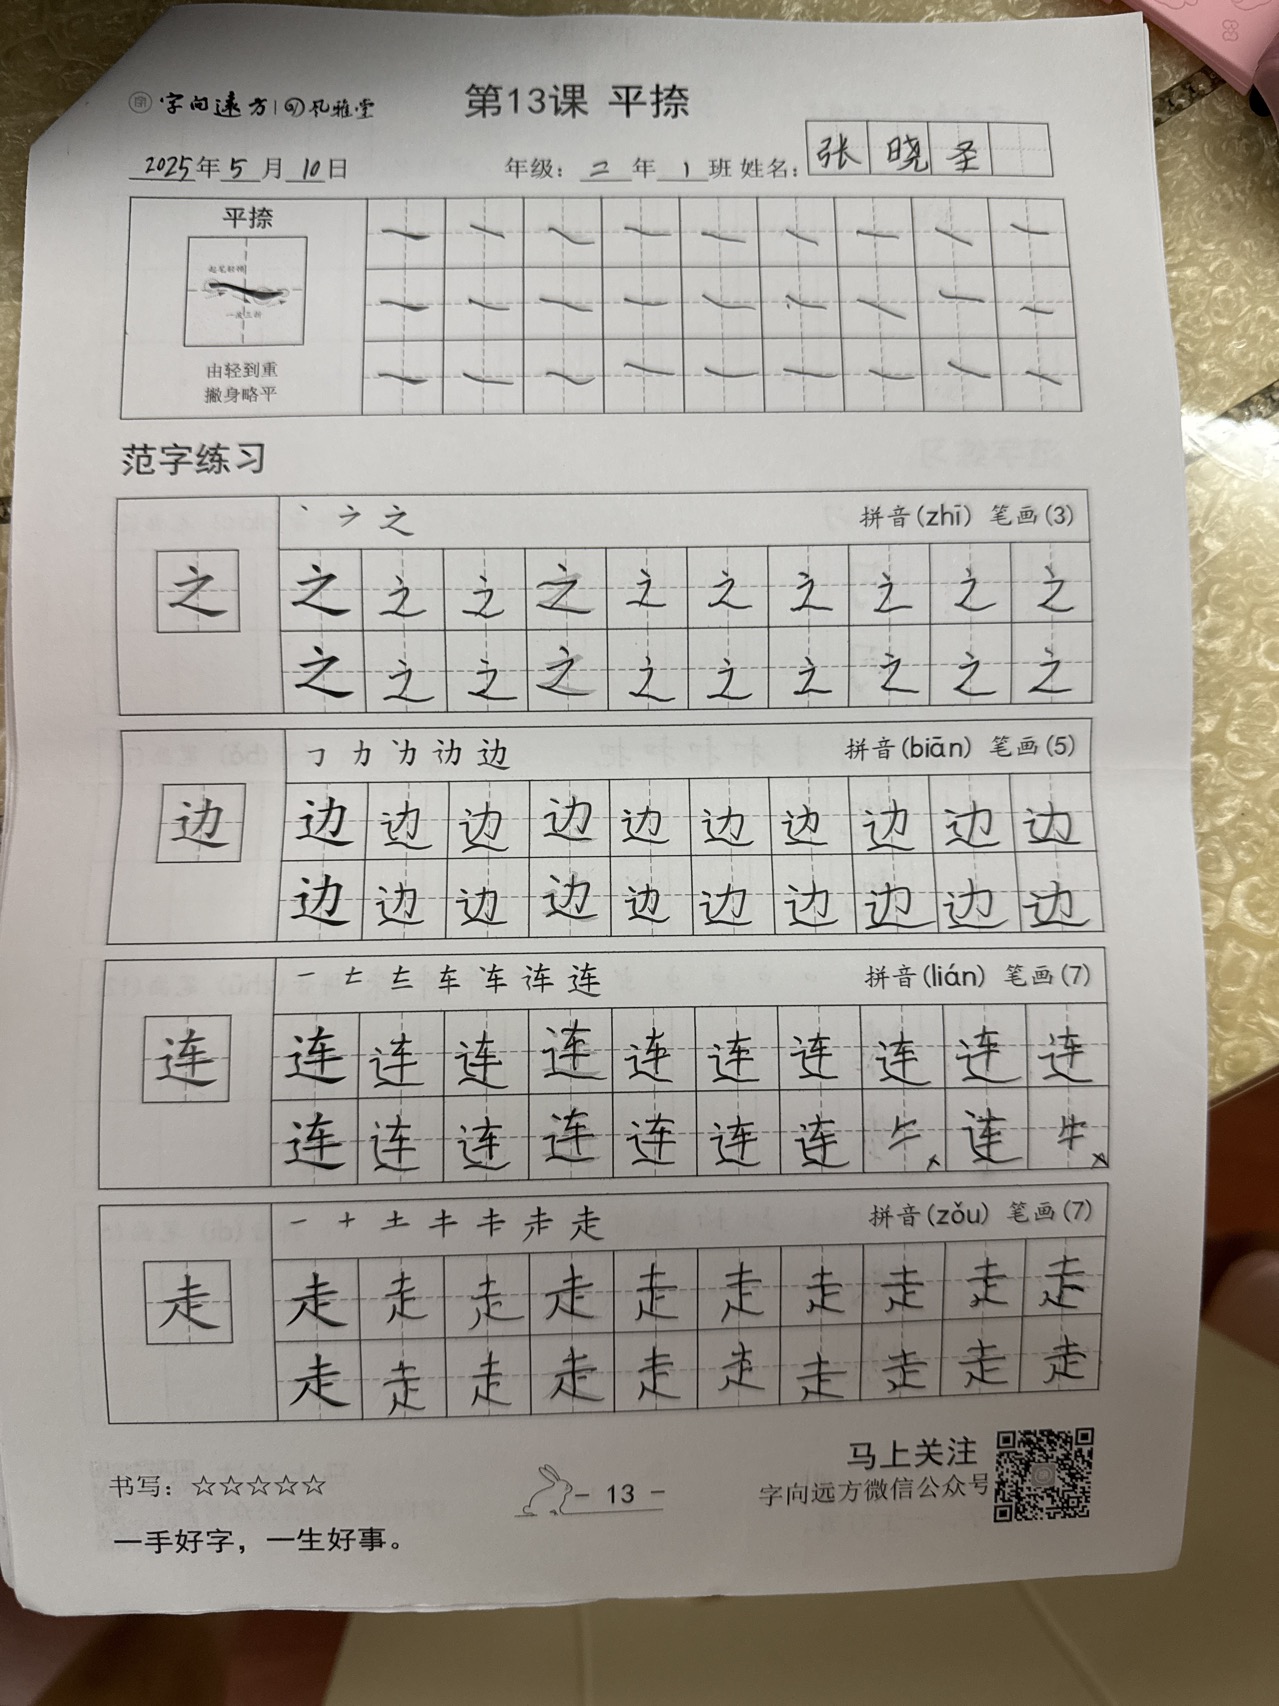 字向远方 风雅堂 第13课 平捺
2025年5月10日 年级：二年1班 姓名：张晓圣
平捺
起笔轻顿
一波三折
由轻到重
撇身略平
范字练习
丶 ㇇ 之 拼音(zhī) 笔画(3)
之 之 之 之 之 之 之 之 之 之 之
之 之 之 之 之 之 之 之 之 之
㇆ 力 边 拼音(biān) 笔画(5)
边 边 边 边 边 边 边 边 边 边 边
边 边 边 边 边 边 边 边 边 边
一 车 连 拼音(lián) 笔画(7)
连 连 连 连 连 连 连 连 连 连 连
连 连 连 连 连 连 连 连
一 十 土 走 拼音(zǒu) 笔画(7)
走 走 走 走 走 走 走 走 走 走 走
走 走 走 走 走 走 走 走 走 走
马上关注
书写：☆☆☆☆☆ - 13 - 字向远方微信公众号
一手好字，一生好事。